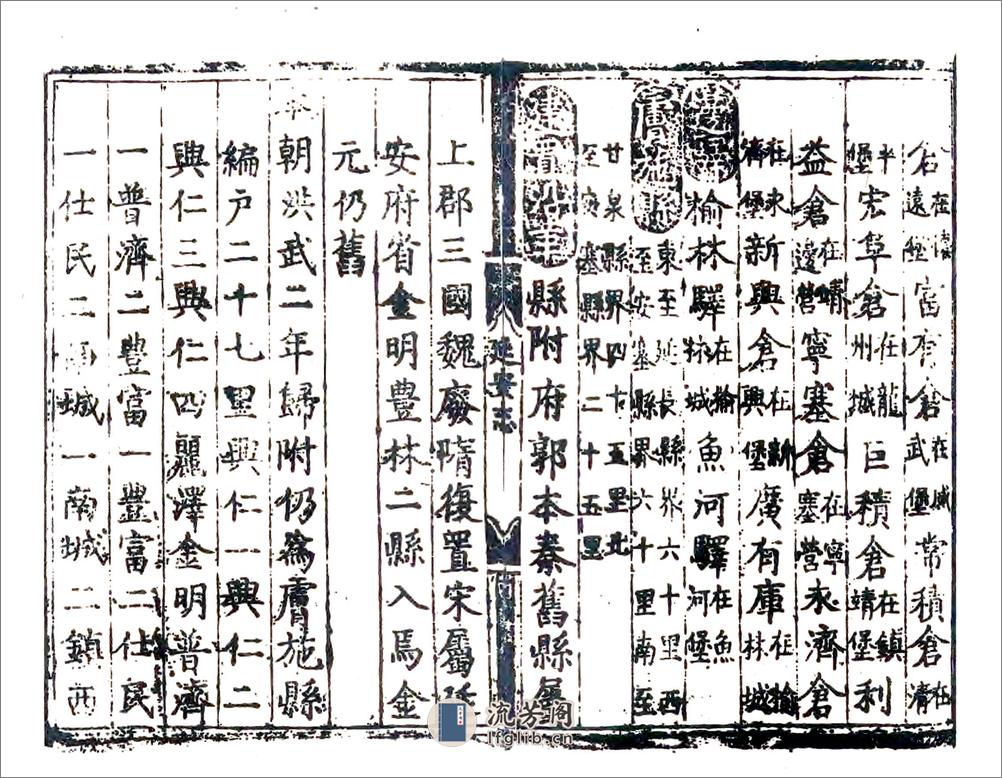 倉在清遠堡富有倉在威武堡常積倉在清
平堡宏阜倉在龍州城巨積倉在鎮靖堡利
益倉在靖邊營寧塞倉在寧塞營永濟倉
在永濟堡新興倉在新興堡廣有庫在榆林城
榆林驛在榆林城魚河驛在魚河堡
膚施縣東至延長縣界六十里西至安塞縣界六十里南至
甘泉縣界四十五里北至安塞縣界二十五里
建置沿革縣附府郭本秦舊縣屬
延安志
上郡三國魏廢隋復置宋屬延
安府省金明豐林二縣入焉金
元仍舊
本朝洪武二年歸附仍為膚施縣
編戶二十七里興仁一興仁二
興仁三興仁四麗澤金明普濟
一普濟二豐富一豐富二仕民
一仕民二南城一南城二鎮西
流芳閣
lfglib.cn